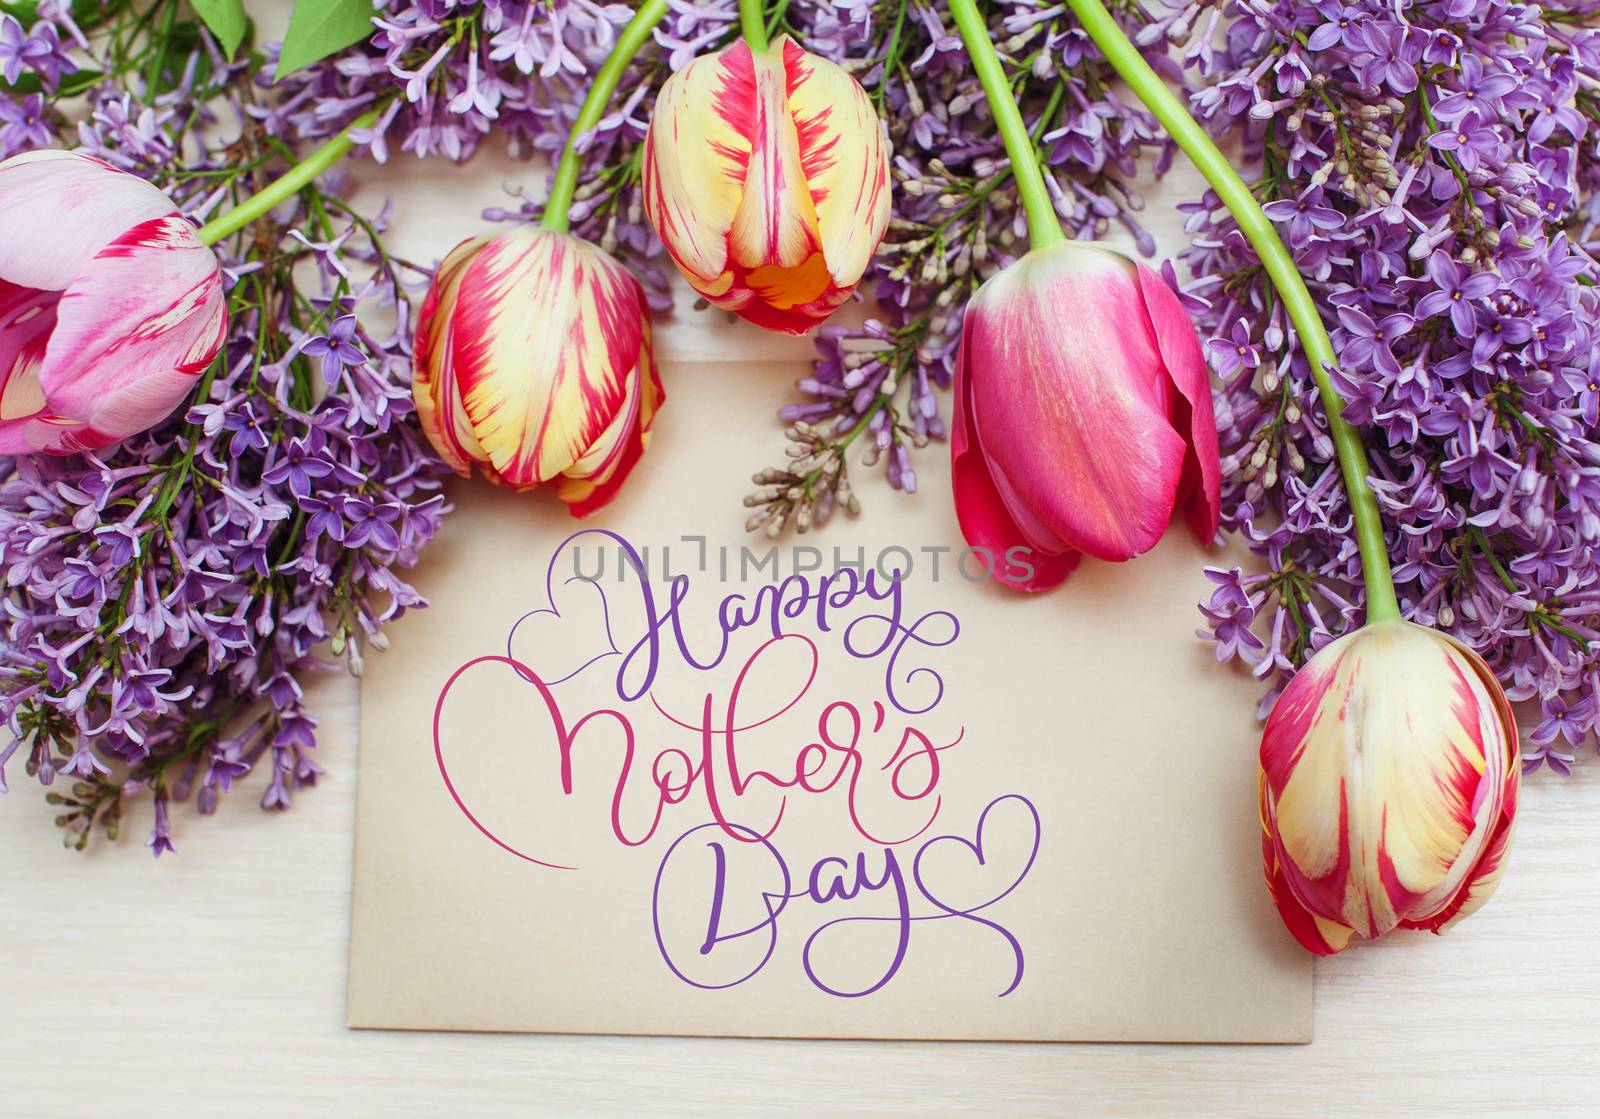 UNLIMPHOTOS
Happy
Mother's
Day